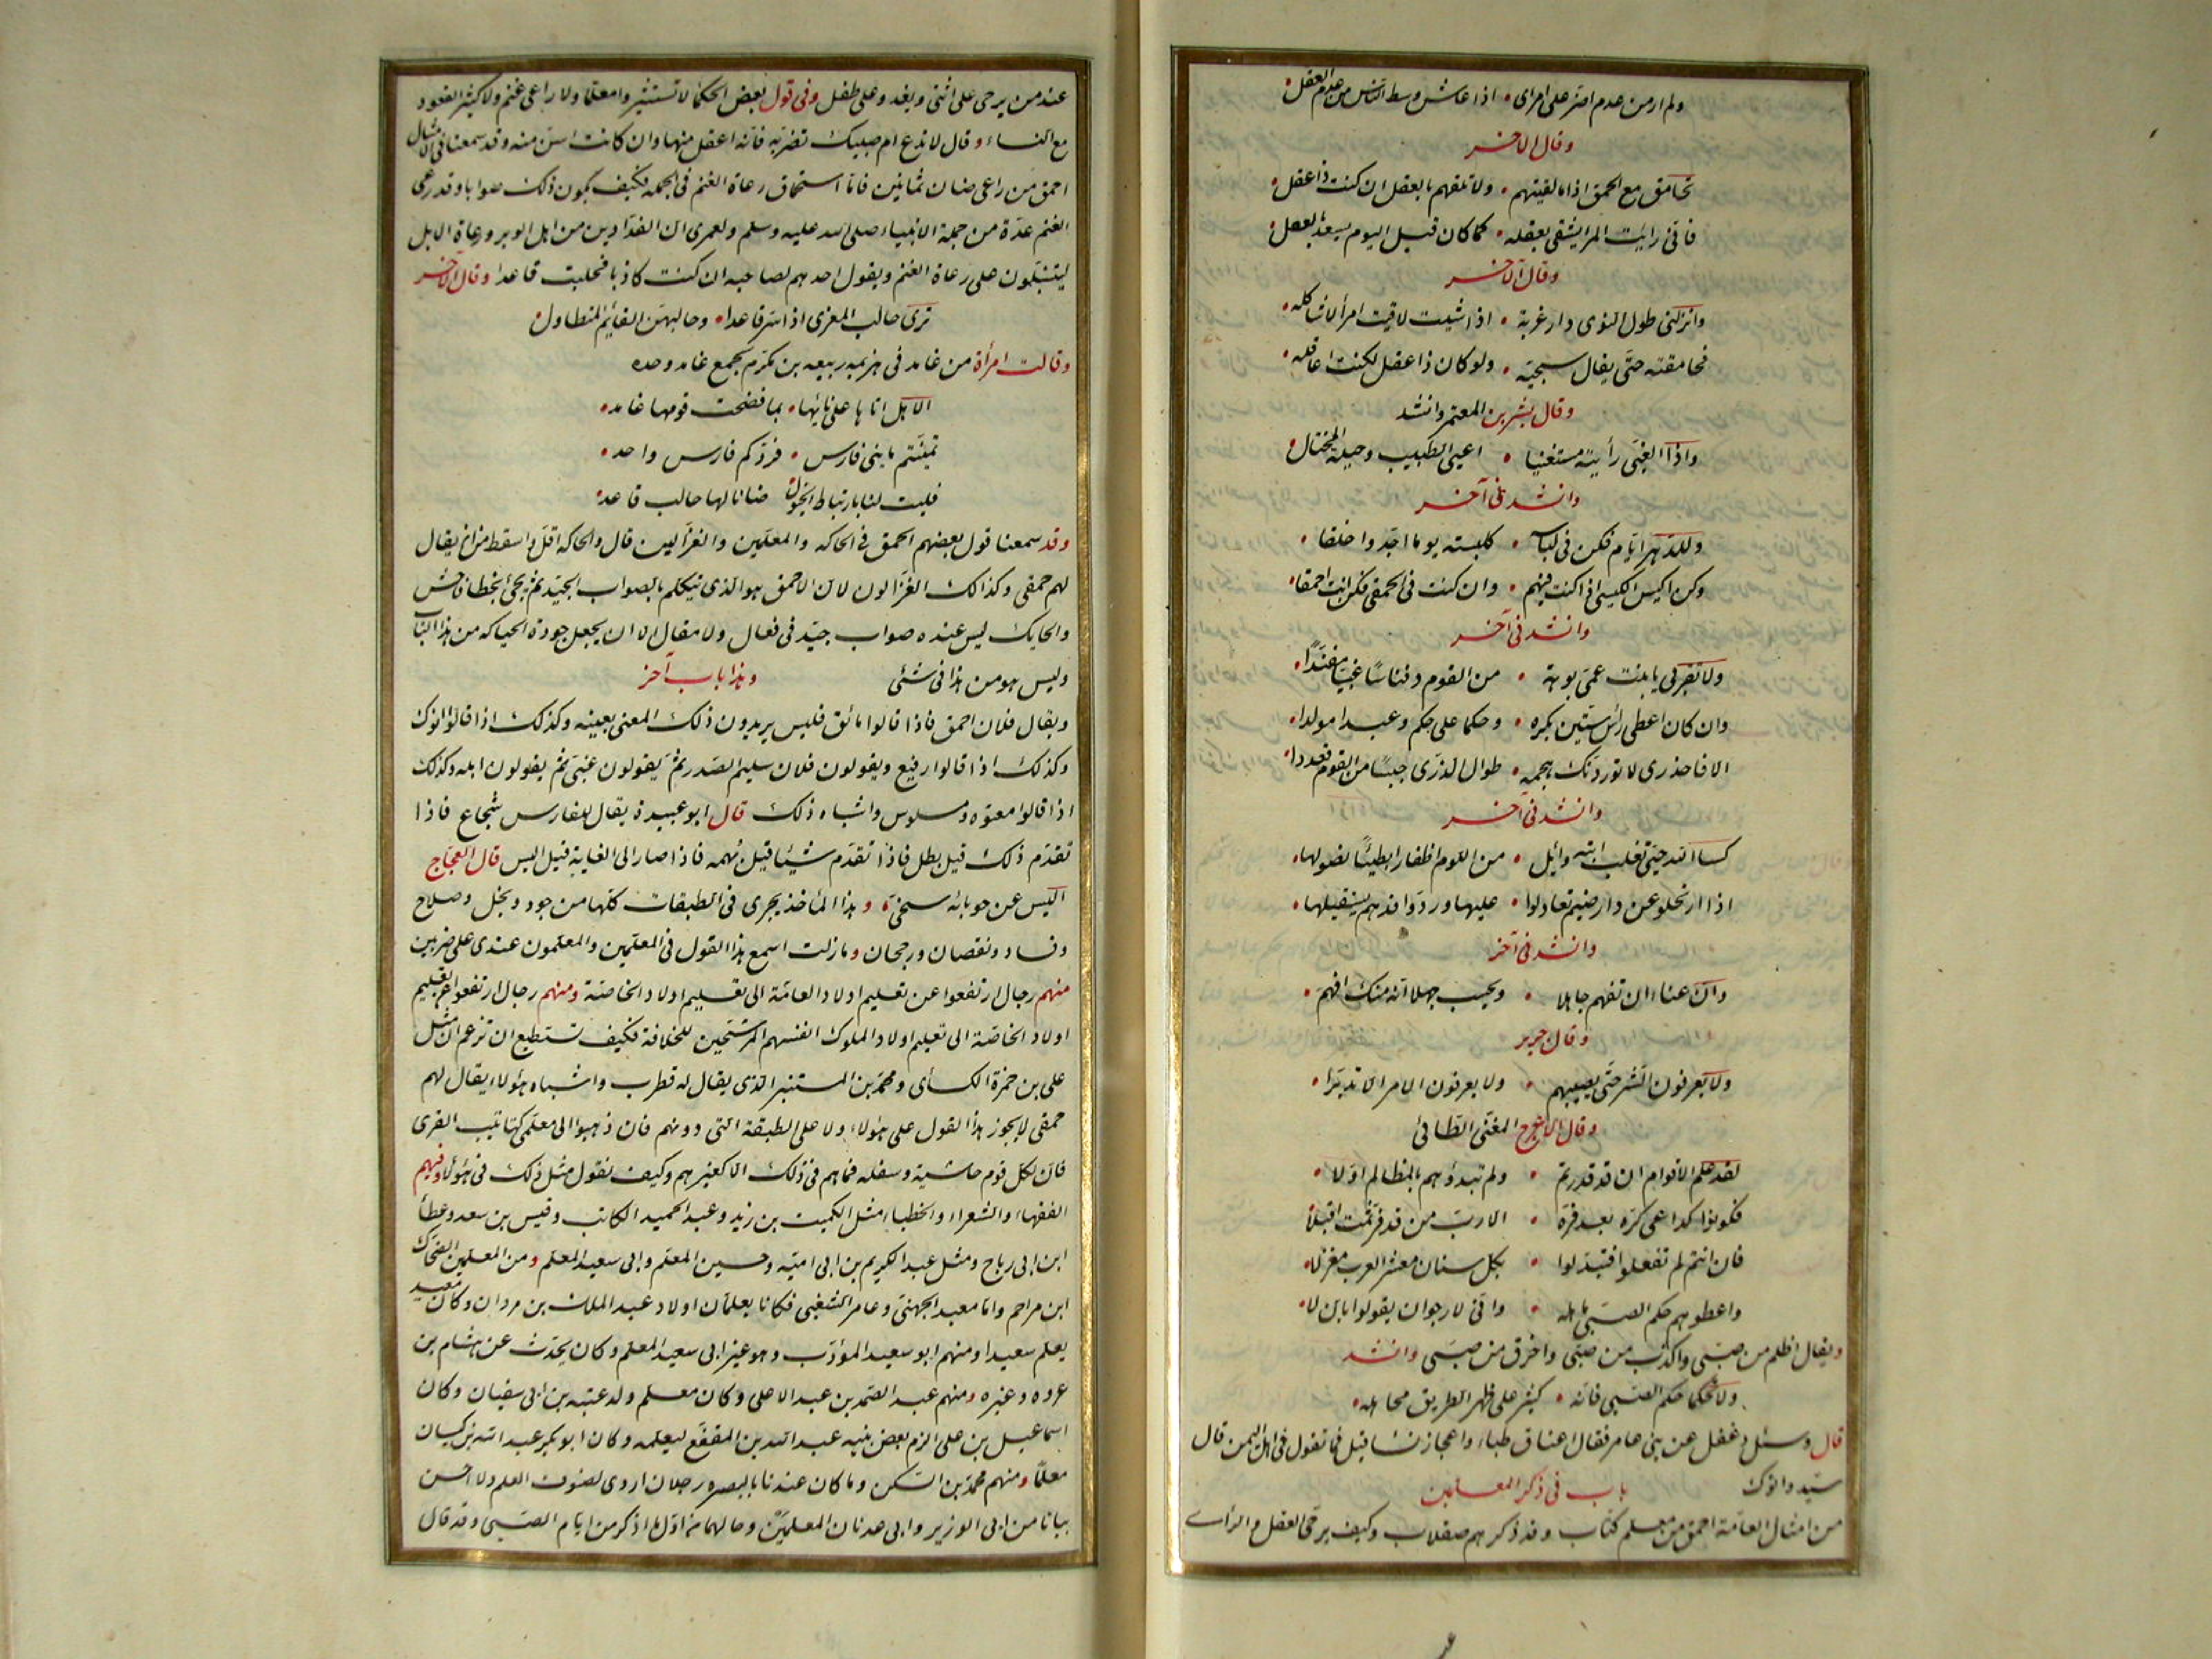 ولم ار من عدم اضر على امرئ • اذا عاش وسط الناس من عدم العقل •
وقال الاخر
تحامق مع الحمق اذا ما لقيتهم • ولا تلقهم بالعقل ان كنت ذا عقل •
فانى رايت المرا يشقى بعقله • كما كان قبل اليوم يسعد بالعقل •
وقال الاخر
وانزلنى طول النوى دار غربة • اذا شيت لاقيت امرأ لا اشاكله •
فحامقته حتى يقال سجية • ولو كان ذا عقل لكنت اعاقله •
وقال بشر بن المعتمر وانشد
واذا الغبى رأيته مستغنيا • اعيى الطبيب وحيلة المحتال •
وانشد فى آخر
وللدهر ايام فكن فى لباسه • كلبسته يوما اجد واخلقا •
وكن اكيس الكيسى اذا كنت فيهم • وان كنت فى الحمقى فكن انت احمقا •
وانشد فى آخر
ولا تقربى يا بنت عمى بوهة • من القوم دفناسًا غبيا مفندًا •
وان كان اعطى رأس ستين بكره • وحكما على حكم وعبدا مولدا •
الا فاحذرى لا توردنك هجمه • طوال الذرى جبسًا من القوم قعددا •
وانشد فى آخر
كسا الله حيى تغلب ابنه وائل • من اللوم اظفارا بطيئًا نصولها •
اذا ارتحلوا عن دار ضيم تعاذلوا • عليها وردوا وفدهم يستقيلها •
وانشد فى آخر
وان عناءا ان تفهم جاهلا • ويحسب جهلا انه منك افهم •
وقال جرير
ولا يعرفون الشر حتى يصيبهم • ولا يعرفون الامر الا تدبرا •
وقال الاعرج المغنى الطائى
لقد علم الاقوام ان قد قدرتم • ولم تبدؤهم بالمظالم اولا •
فكونوا كداعى كره بعد فره • الا رب من قد فر ثمت اقبلا
فان انتم لم تفعلوا فتبدلوا • بكل سنان معشر العرب مغزلا •
واعطوهم حكم الصبى باهله • وانى لارجو ان يقولوا بان لا •
ويقال اظلم من صبى واكذب من صبى واخرق من صبى وانشد
ولا تحكما حكم الصبى فانه • كثير على ظهر الطريق مجاهله •
قال وسئل دغفل عن بنى عامر فقال اعناق ظباء واعجاز نسا قيل فما تقول فى اهل اليمن قال
سيد وانوك باب فى ذكر المعلمين
من امثال العامة احمق من معلم كتاب وقد ذكرهم صقلاب وكيف يرجى العقل والراى
عند من يرحى على انثى ويغد وعلى طفل وفى قول بعض الحكما لا تستشيروا معلما ولا راعى غنم ولا كثير القعود
مع النساء وقال لا تدع ام صبيك تضربه فانه اعقل منها وان كانت اسن منه وقد سمعنا فى الامثال
احمق من راعى ضان ثمانين فاما استحماق رعاة الغنم فى الجمله فكيف يكون ذلك صوابا وقد رعى
الغنم عدة من جملة الانبياء صلى الله عليه وسلم ولعمرى ان الفدادين من اهل الوبر ورعاة الابل
ليتنبلون على رعاة الغنم ويقول احدهم لصاحبه ان كنت كاذبا فحلبت قاعدا وقال الآخر
ترى حالب المعزى اذا سر قاعدا • وحالبهن القايم المتطاول •
وقالت امرأة من غامد فى هزيمه ربيعه بن مكرم بجمع غامد وحده
الا هل اتاها على نأيها • بما فضحت قومها غامد •
تمنيتم ماىنى فارس • فردكم فارس واحد •
فليت لنا بارتباط الخيول ضانا لها حالب قاعد •
وقد سمعنا قول بعضهم الحمق فى الحاكه والمعلمين والغزالين قال والحاكه اقل واسقط من ان يقال
لهم حمقى وكذلك الغزالون لان الاحمق هو الذى يتكلم بالصواب الجيد ثم يجئ بخطا فاحش
والحايك ليس عنده صواب جيد فى فعال ولا مقال الا ان يجعل جودة الحياكه من هذا الباب
وليس هو من هذا فى شئ وهذا باب آخر
ويقال فلان احمق فاذا قالوا مائق فليس يريدون ذلك المعنى بعينه وكذلك اذا قالوا انوك
وكذلك اذا قالوا رقيع ويقولون فلان سليم الصدر ثم يقولون غبى ثم يقولون ابله وكذلك
اذا قالوا معتوه ومسلوس واشباه ذلك قال ابو عبيدة يقال للفارس شجاع فاذا
تقدم ذلك قيل بطل فاذا تقدم شيئا قيل بُهمه فاذا صار الى الغاية قيل اليس قال العجاج
اليس عن حوبائه سخى • وهذا المأخذ يجرى فى الطبقات كلها من جود وبخل وصلاح
وفساد ونقصان ورجحان وما زلت اسمع هذا القول فى المعلمين والمعلمون عندى على ضربين
منهم رجال ارتفعوا عن تعليم اولاد العامة الى تعليم اولاد الخاصة ومنهم رجال ارتفعوا عن تعليم
اولاد الخاصة الى تعليم اولاد الملوك انفسهم المرشحين للخلافة فكيف تستطيع ان تزعم ان مثل
على بن حمزة الكسأى ومحمد بن المستنير الذى يقال له قطرب واشباه هؤلاء يقال لهم
حمقى لا يجوز هذا القول على هؤلاء ولا على الطبقة التى دونهم فان ذهبوا الى معلمى كتاتيب القرى
فان لكل قوم حاشية وسفله فماهم فى ذلك الا كغيرهم وكيف نقول مثل ذلك فى هؤلاء وفيهم
الفقهاء والشعراء والخطباء مثل الكميت بن زيد وعبد الحميد الكاتب وقيس بن سعد وعطأ
ابن ابى رباح ومثل عبد الكريم بن ابى اميه وحسين المعلم وابى سعيد المعلم ومن المعلمين الضحاك
ابن مزاحم واما معبد الجهنى وعامر الشعبى فكانا يعلمان اولاد عبد الملك بن مروان وكان معبد
يعلم سعيدا ومنهم ابو سعيد المؤدب وهو غير ابى سعيد المعلم وكان يحدث عن هشام بن
عروه وغيره ومنهم عبد الصمد بن عبد الاعلى وكان معلم ولد عتبه بن ابى سفيان وكان
اسماعيل بن على الزم بعض بنيه عبد الله بن المقفع ليعلمه وكان ابو بكر عبد الله بن كيسان
معلمًا ومنهم محمد بن السكن وما كان عندنا بالبصره رجلان اروى لصنوف العلم ولا احسن
بيانا من ابى الوزير وابى عدنان المعلمين وحالهما من اول ما اذكر من ايام الصبى وقد قال